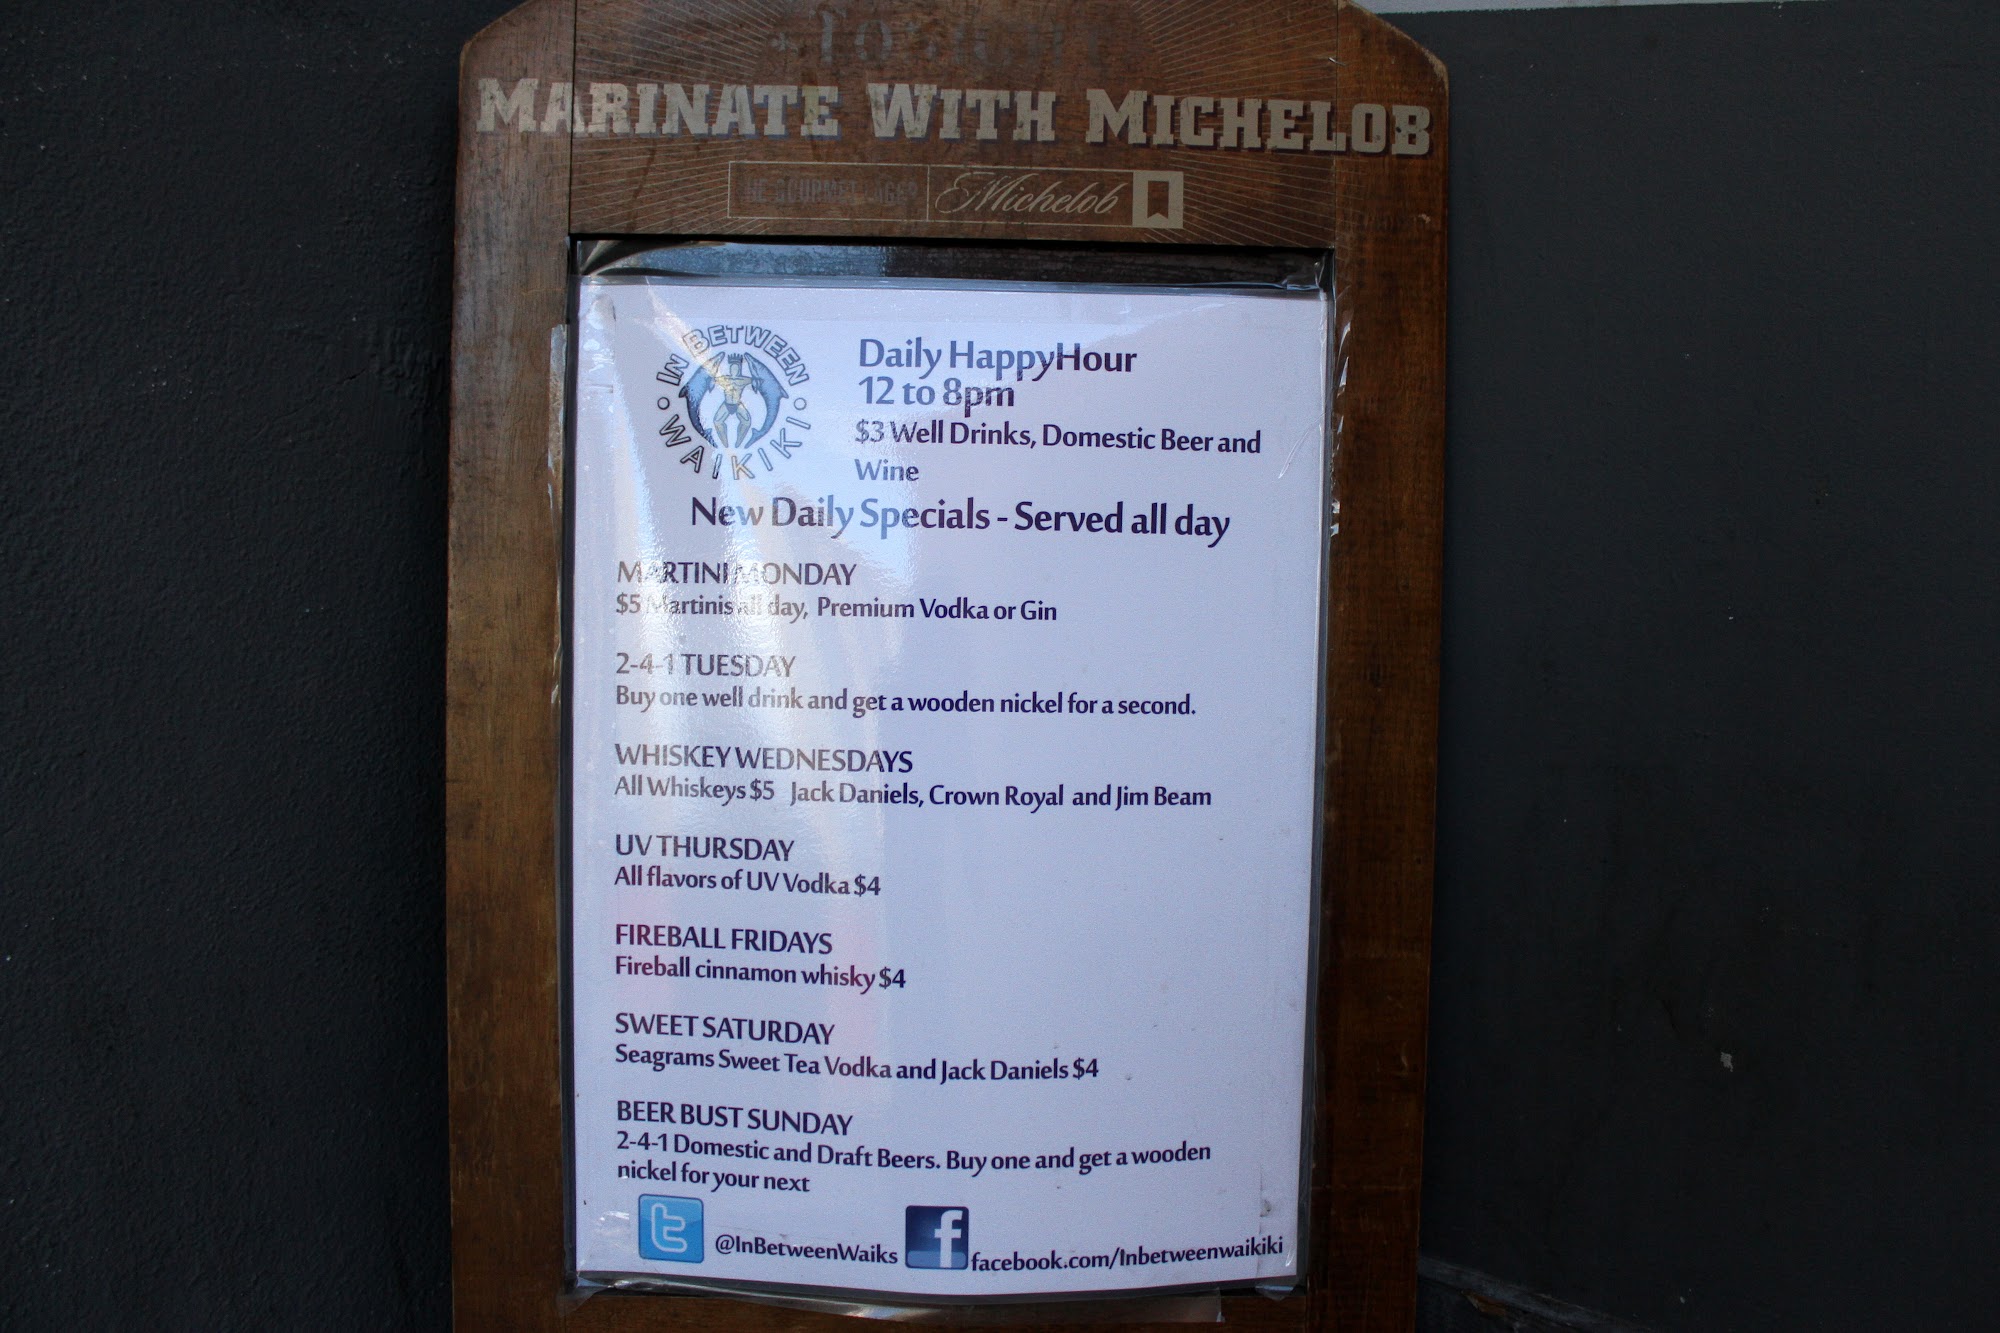 MARINATE WITH MICHELOB
THE GOURMET LAGER Michelob
IN BETWEEN
WAIKIKI
Daily HappyHour
12 to 8pm
$3 Well Drinks, Domestic Beer and
Wine
New Daily Specials - Served all day
MARTINI MONDAY
$5 Martinis all day, Premium Vodka or Gin
2-4-1 TUESDAY
Buy one well drink and get a wooden nickel for a second.
WHISKEY WEDNESDAYS
All Whiskeys $5 Jack Daniels, Crown Royal and Jim Beam
UV THURSDAY
All flavors of UV Vodka $4
FIREBALL FRIDAYS
Fireball cinnamon whisky $4
SWEET SATURDAY
Seagrams Sweet Tea Vodka and Jack Daniels $4
BEER BUST SUNDAY
2-4-1 Domestic and Draft Beers. Buy one and get a wooden
nickel for your next
@InBetweenWaiks facebook.com/Inbetweenwaikiki